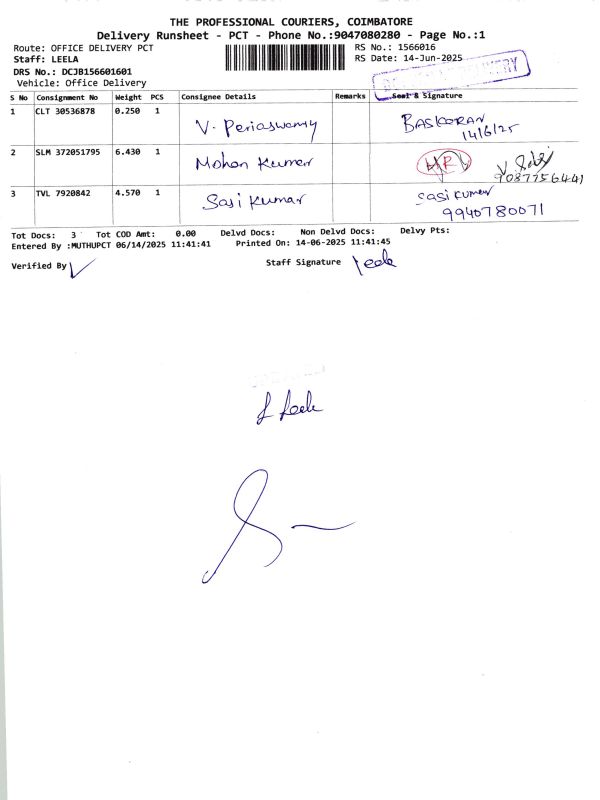 THE PROFESSIONAL COURIERS, COIMBATORE
Delivery Runsheet - PCT - Phone No.:9047080280 - Page No.:1
Route: OFFICE DELIVERY PCT RS No.: 1566016
Staff: LEELA RS Date: 14-Jun-2025
DRS No.: DCJB156601601
Vehicle: Office Delivery DELIVERY
S No Consignment No Weight PCS Consignee Details Remarks Seal & Signature
1 CLT 30536878 0.250 1 V. Periaswamy BASKARAN
14/6/25
2 SLM 372051795 6.430 1 Mohan Kumar
9087756441
3 TVL 7920842 4.570 1 Sasi Kumar Sasi Kumar
9940780071
Tot Docs: 3 Tot COD Amt: 0.00 Delvd Docs: Non Delvd Docs: Delvy Pts:
Entered By :MUTHUPCT 06/14/2025 11:41:41 Printed On: 14-06-2025 11:41:45
Verified By Staff Signature Leela
Leela